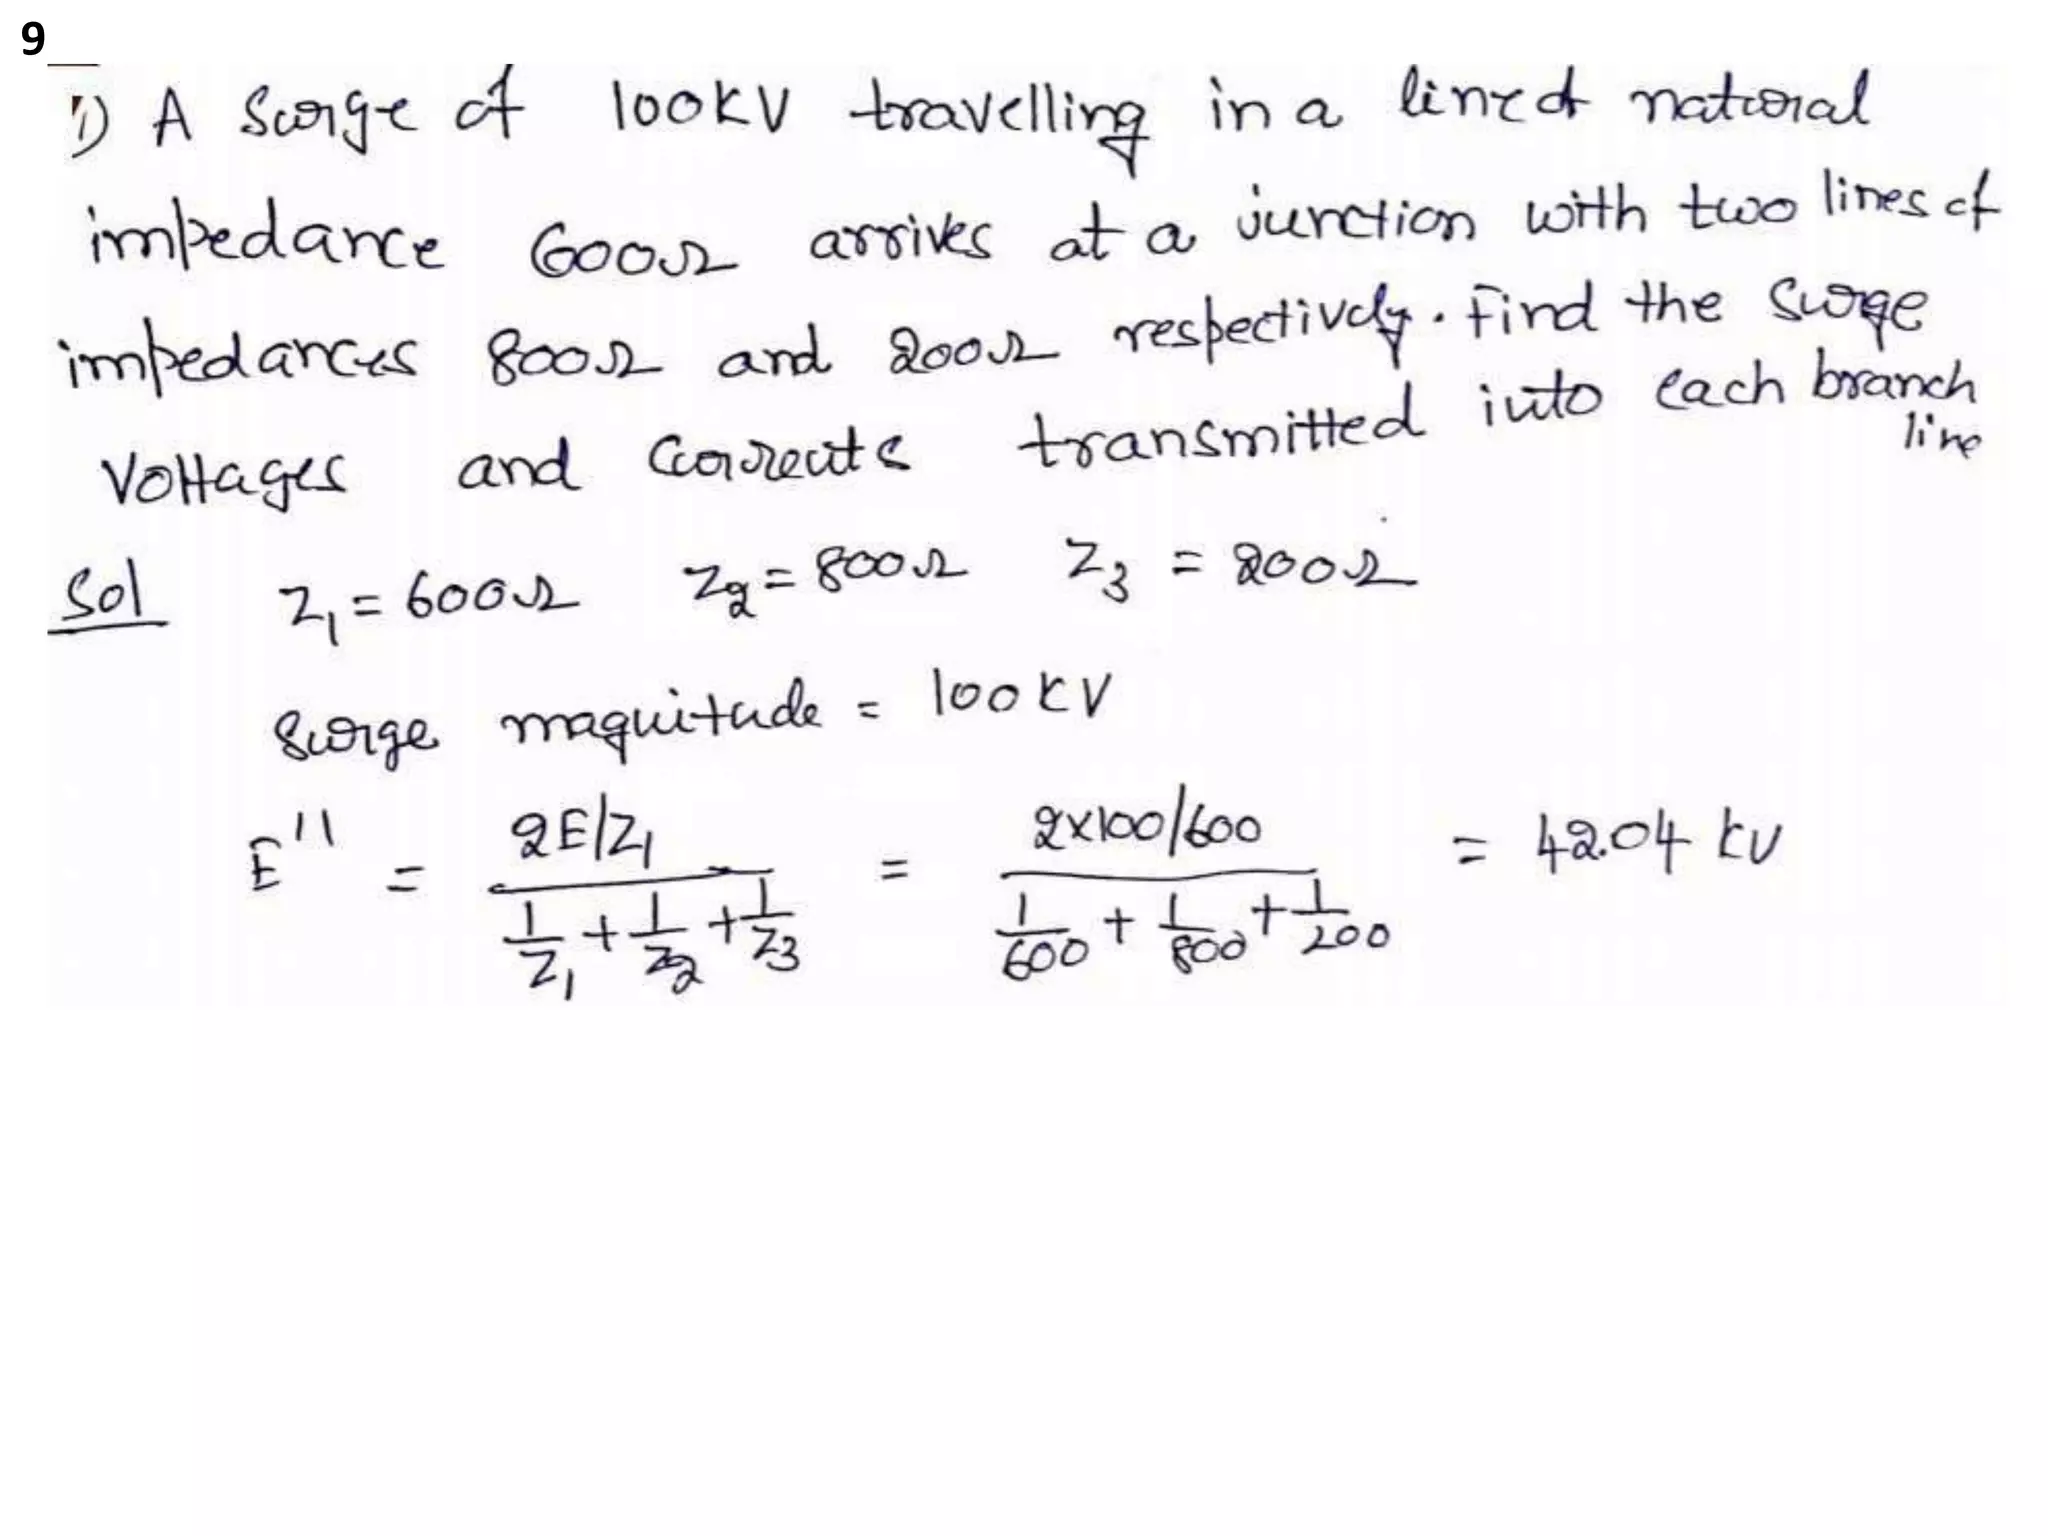 9
1) A Surge of 100KV travelling in a line of natural
impedance 600Ω arrives at a junction with two lines of
impedances 800Ω and 200Ω respectively. Find the Surge
Voltages and Currents transmitted into each branch
line
Sol Z1 = 600Ω Z2 = 800Ω Z3 = 200Ω
Surge magnitude = 100KV
E'' = (2E/Z1) / (1/Z1 + 1/Z2 + 1/Z3) = (2×100/600) / (1/600 + 1/800 + 1/200) = 42.04 kV